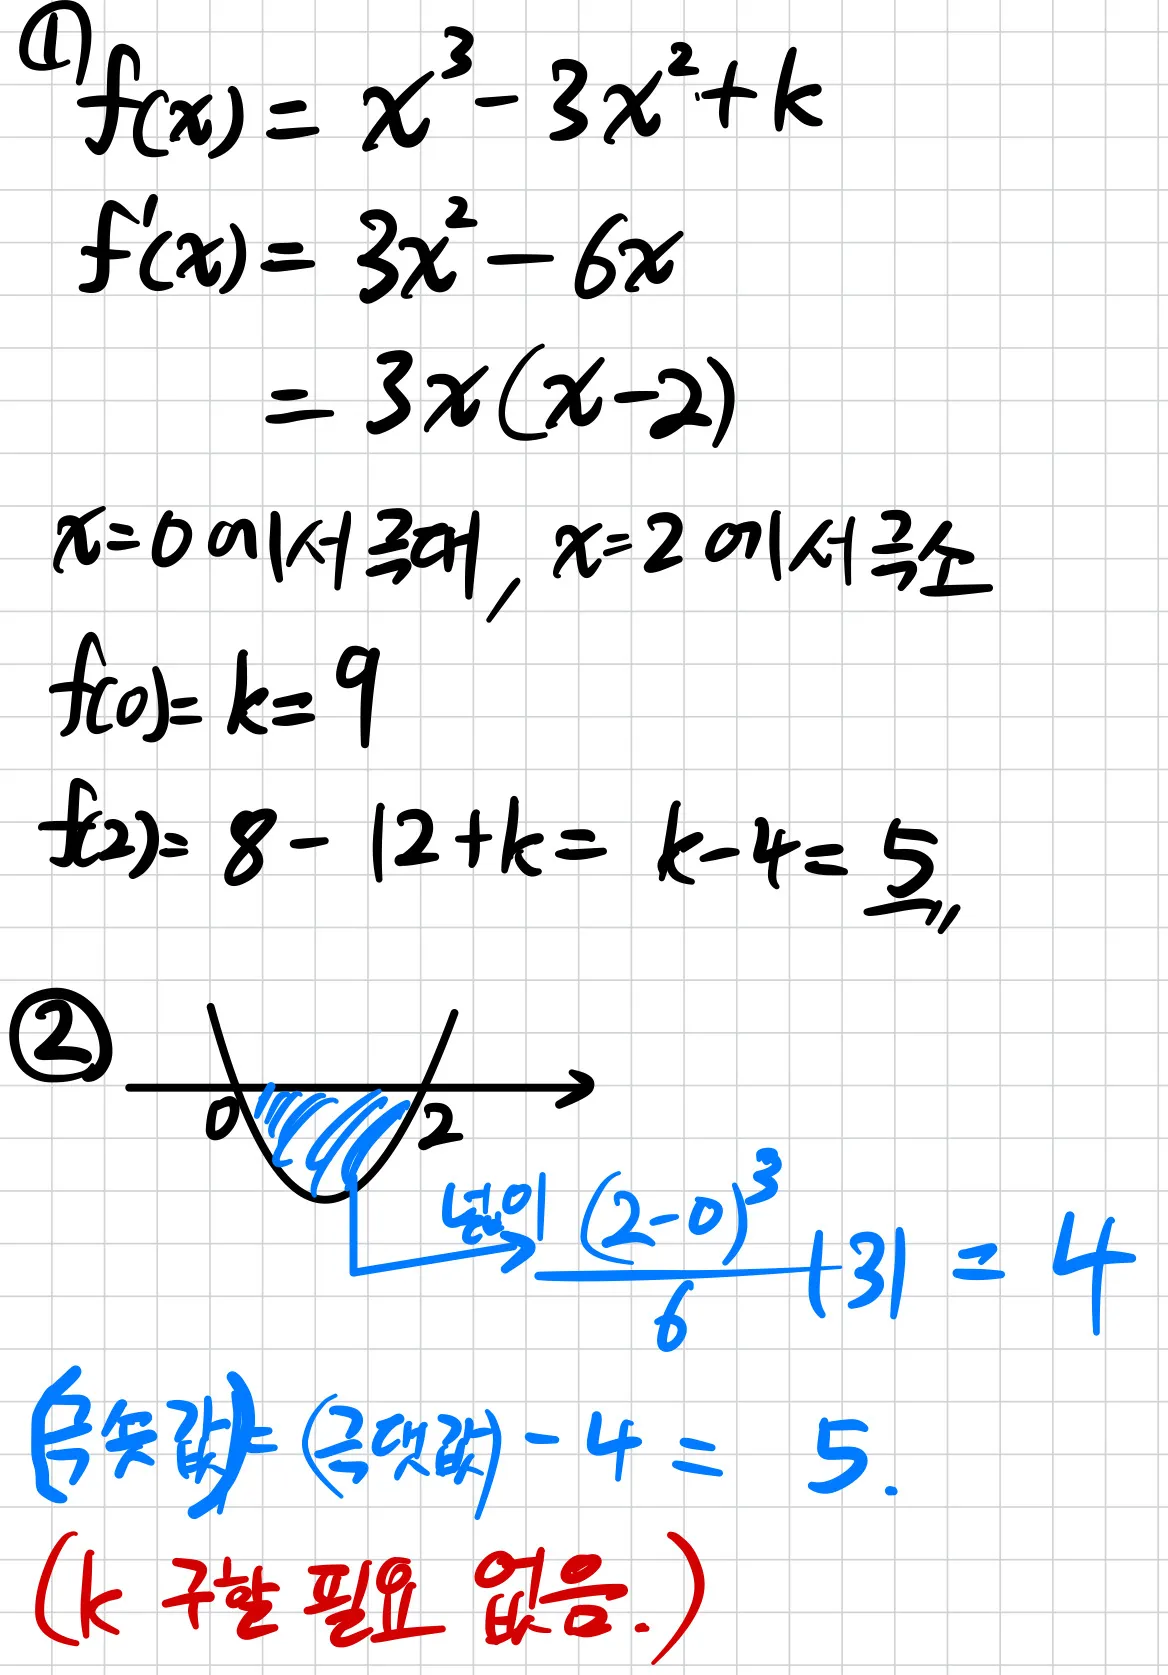 ① f(x) = x³ - 3x² + k
f'(x) = 3x² - 6x
= 3x(x-2)
x=0에서 극대, x=2에서 극소
f(0) = k = 9
f(2) = 8 - 12 + k = k - 4 = 5
②
0 2
넓이 (2-0)³/6 |3| = 4
(극솟값) = (극댓값) - 4 = 5.
(k 구할 필요 없음.)